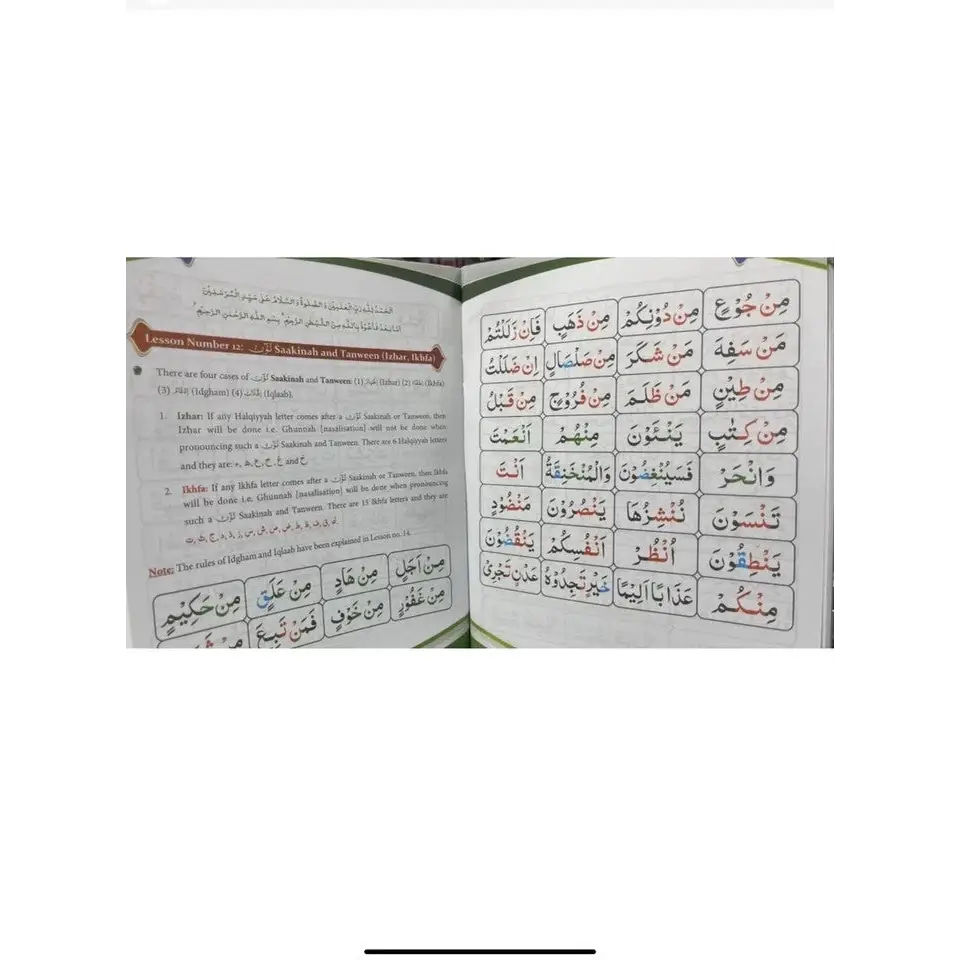 اَلْحَمْدُ لِلّٰهِ رَبِّ الْعٰلَمِيْنَ وَ الصَّلٰوةُ وَ السَّلَامُ عَلٰى سَيِّدِ الْمُرْسَلِيْنَ
اَمَّا بَعْدُ فَاَعُوْذُ بِاللّٰهِ مِنَ الشَّيْطٰنِ الرَّجِيْمِ ؕ بِسْمِ اللّٰهِ الرَّحْمٰنِ الرَّحِيْمِ ؕ
Lesson Number 12: نُوْن Saakinah and Tanween (Izhar, Ikhfa)
There are four cases of نُوْن Saakinah and Tanween: (1) اِظْهَار (Izhar) (2) اِخْفَاء (Ikhfa)
(3) اِدْغَام (Idgham) (4) اِقْلَاب (Iqlaab).
1. Izhar: If any Halqiyyah letter comes after a نُوْن Saakinah or Tanween, then
Izhar will be done i.e. Ghunnah [nasalisation] will not be done when
pronouncing such a نُوْن Saakinah and Tanween. There are 6 Halqiyyah letters
and they are: ء, ھ, ع, ح, غ and خ.
2. Ikhfa: If any Ikhfa letter comes after a نُوْن Saakinah or Tanween, then Ikhfa
will be done i.e. Ghunnah [nasalisation] will be done when pronouncing
such a نُوْن Saakinah and Tanween. There are 15 Ikhfa letters and they are
ت, ث, ج, د, ذ, ز, س, ش, ص, ض, ط, ظ, ف, ق, ك.
Note: The rules of Idgham and Iqlaab have been explained in Lesson no. 14.
مِنْ اَجَلٍ مِنْ هَادٍ مِنْ عَلَقٍ مِنْ حَكِيْمٍ
مِنْ غَفُوْرٍ مِنْ خَوْفٍ فَمَنْ تَبِعَ
مِنْ جُوْعٍ مِنْ دُوْنِكُمْ مِنْ ذَهَبٍ فَاِنْ زَلَلْتُمْ
مَنْ سَفِهَ مَنْ شَكَرَ مِنْ صَلْصَالٍ اِنْ ضَلَلْتُ
مِنْ طِيْنٍ مَنْ ظَلَمَ مِنْ فُرُوْجٍ مِنْ قَبْلُ
مِنْ كِتٰبٍ يَنْـَٔوْنَ مِنْهُمْ اَنْعَمْتَ
وَانْحَرْ فَسَيُنْغِضُوْنَ وَالْمُنْخَنِقَةُ اَنْتَ
تَنْسَوْنَ نُنْشِزُهَا يَنْصُرُوْنَ مَنْضُوْدٍ
يَنْطِقُوْنَ اُنْظُرْ اَنْفُسِكُمْ يَنْقُضُوْنَ
مِنْكُمْ عَذَابًا اَلِيْمًا خَيْرٍ تَجِدُوْهُ عَدْنٍ تَجْرِىْ